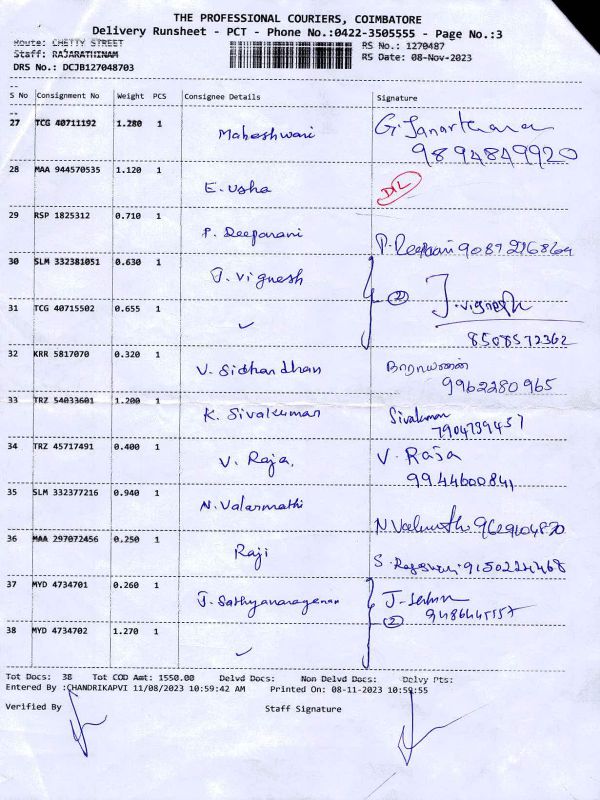 THE PROFESSIONAL COURIERS, COIMBATORE
Delivery Runsheet - PCT - Phone No.:0422-3505555 - Page No.:3
Route: CHETTY STREET
Staff: RAJARATHINAM
DRS No.: DCJB127048703
RS No.: 1270487
RS Date: 08-Nov-2023
S No Consignment No Weight PCS Consignee Details Signature
27 TCG 40711192 1.280 1 Maheshwari G.
9894849920
28 MAA 944570535 1.120 1 E. Usha
29 RSP 1825312 0.710 1 P. Deeparani P. Deeparani
30 SLM 332381051 0.630 1 J. Vignesh J. Vignesh
31 TCG 40715502 0.655 1 ✓ 2
8508572362
32 KRR 5817070 0.320 1 V. Sidhandhan நாராயணன்
9962280965
33 TRZ 54033601 1.200 1 K. Sivakumar Sivakumar
7904739457
34 TRZ 45717491 0.400 1 V. Raja. V. Raja
9944600841
35 SLM 332377216 0.940 1 N. Valarmathi
36 MAA 297072456 0.250 1 Raji S.
37 MYD 4734701 0.260 1 J. Sathyanarayanan J.
38 MYD 4734702 1.270 1 ✓ 2
Tot Docs: 38 Tot COD Amt: 1550.00 Delvd Docs: Non Delvd Docs: Delvy Pts:
Entered By :CHANDRIKAPVI 11/08/2023 10:59:42 AM Printed On: 08-11-2023 10:59:55
Verified By Staff Signature